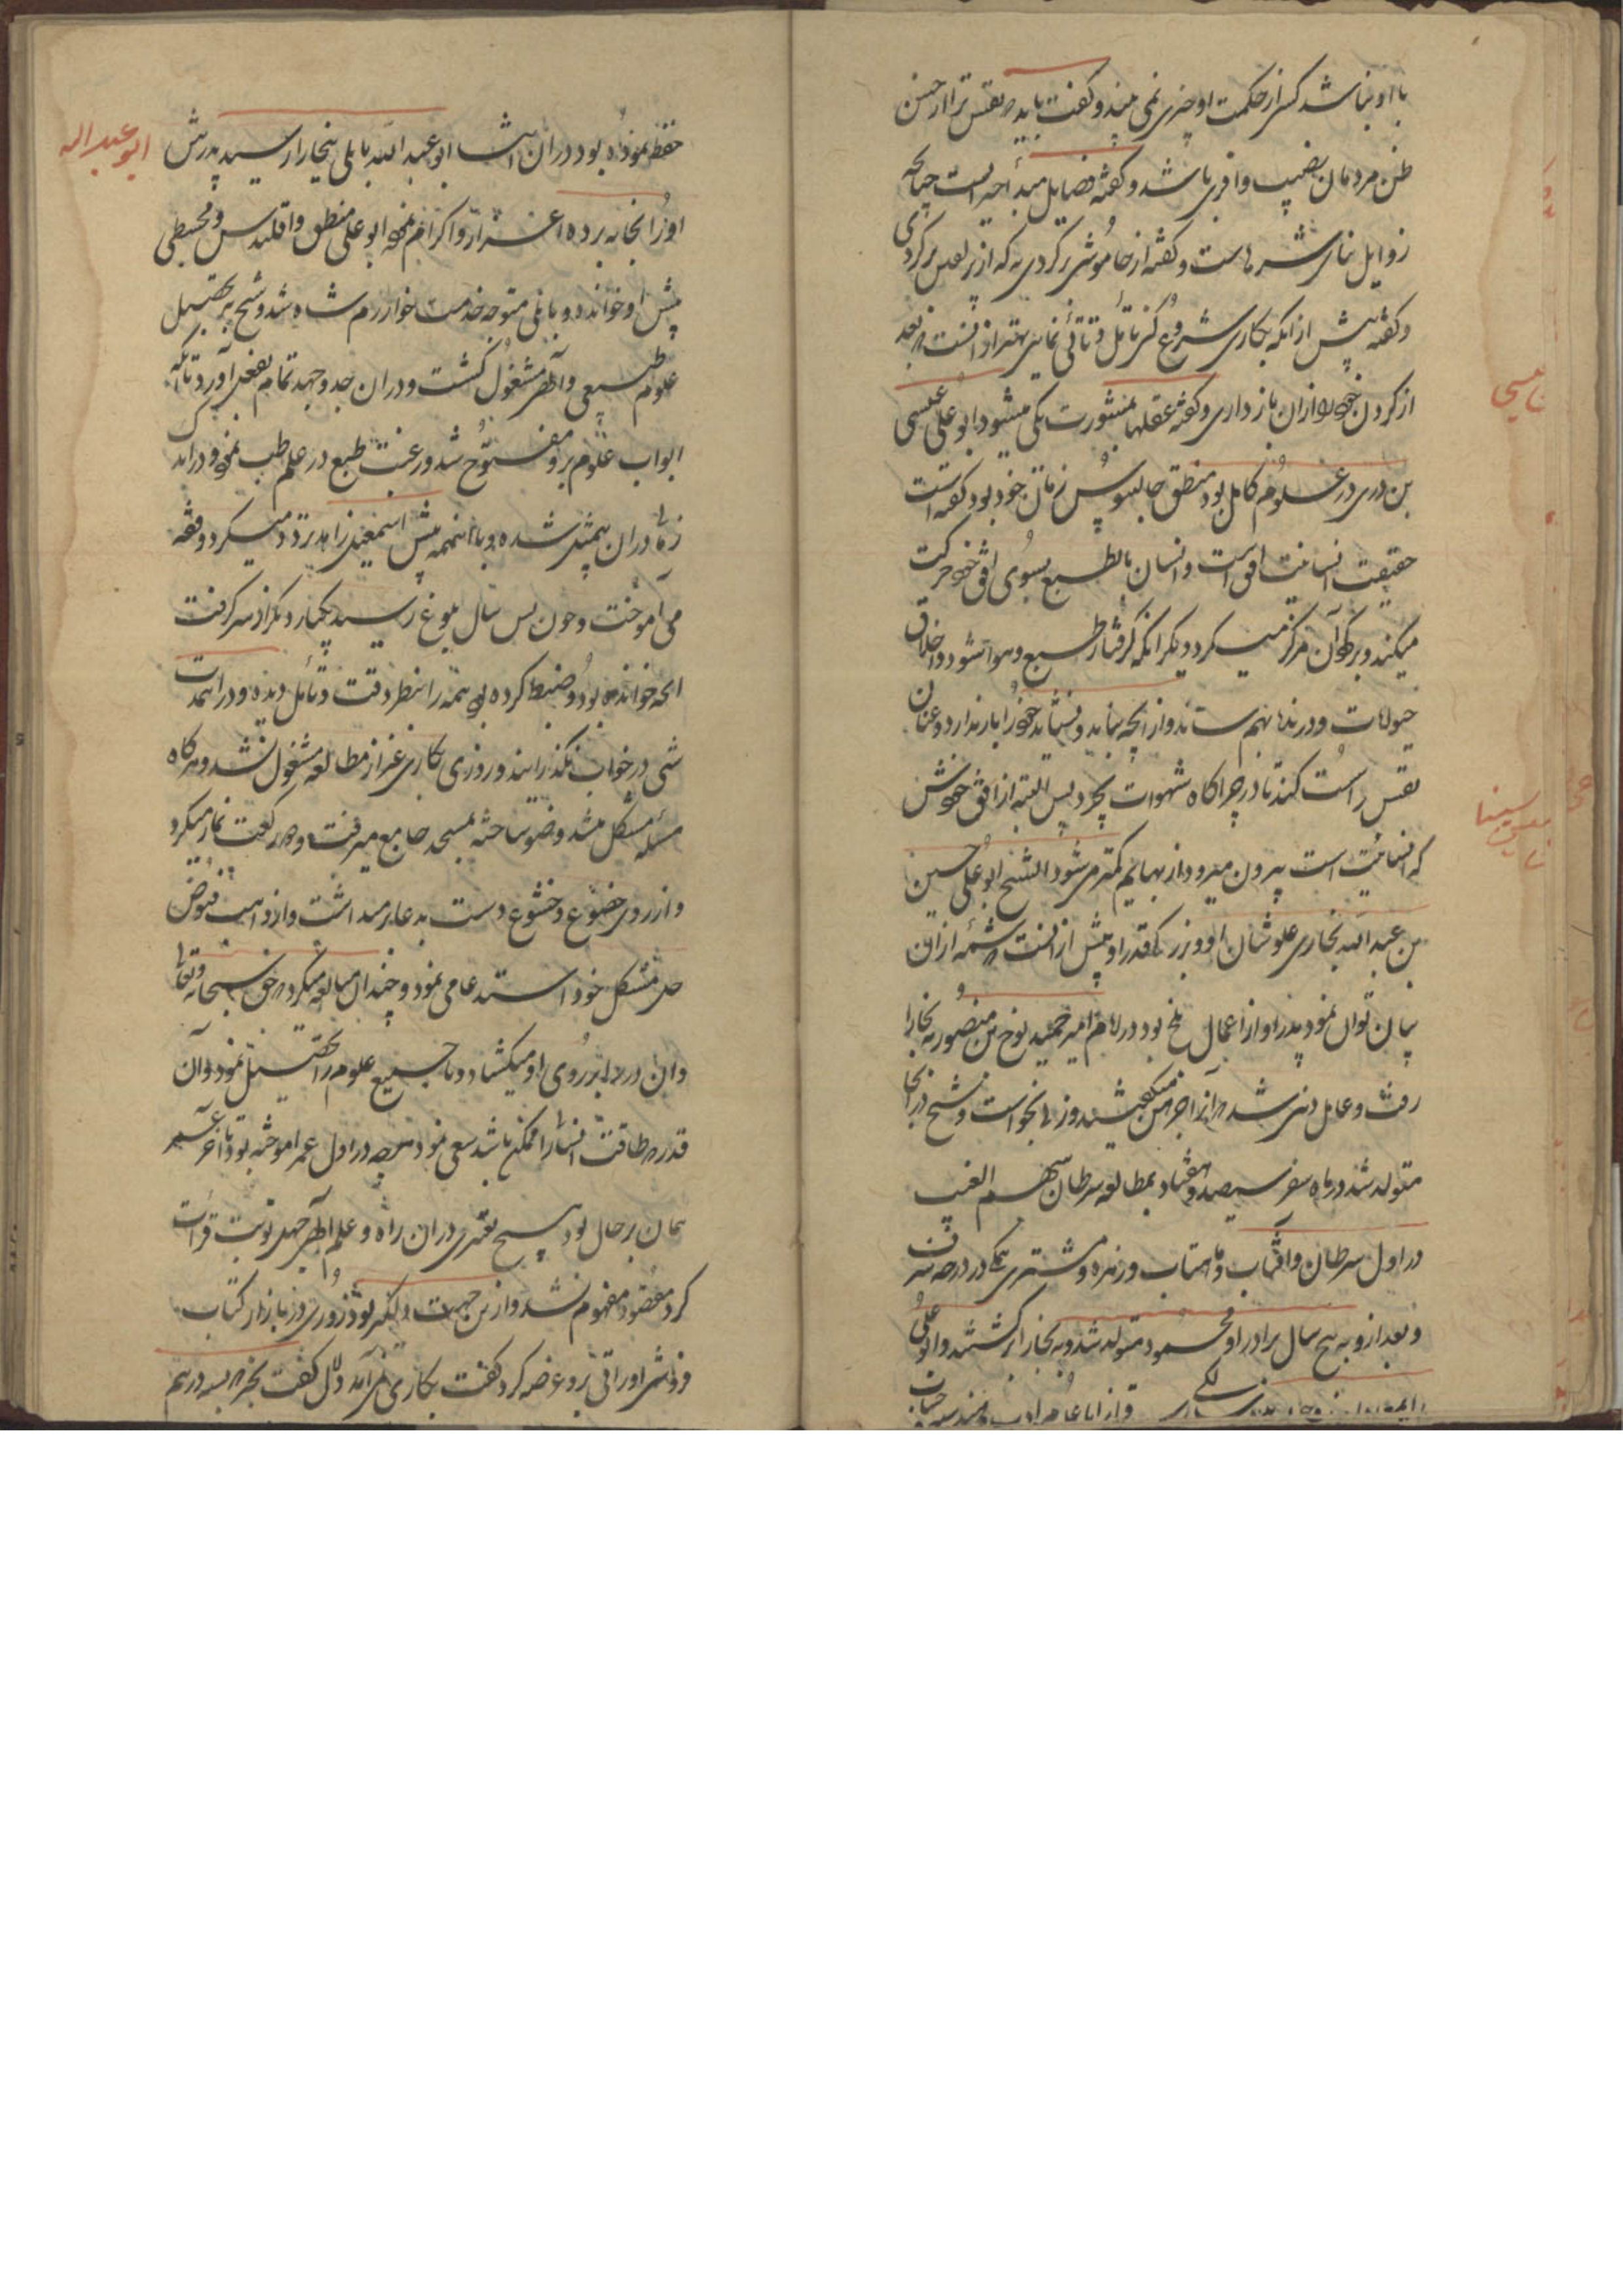 با او نباشد کس از حکمت او چیزی نمی بیند و کفت باید که نفس ترا از حسن
ظن مردمان نصیب وافر باشد و کفته فضایل مبدأ خیر است چنانچه
رذایل بنای شرهاست و کفته از خاموشی برکردی به که از
و کفته پیش از آنکه بکاری شروع کنی تامل و تأنی نمایی بهتر از آنست که بعد
از کردن خود را از آن باز داری و کفته عقلها بمشورت یکی میشود ابو علی عیسی
بن در علوم کامل بود منطق جالینوس زمان خود بود کفته است
حقیقت انسانیت افق است و انسان بالطبع بسوی افق خود حرکت
میکند و برکرد آن مرکز میکردد مکر آنکه کرفتار طبع و هوا شود و اخلاق
نفس را سست کند تا در چراکاه شهوات بچرد پس البته از افق خودش
که انسانیت است بیرون میرود از بهایم کمتر می شود الشیخ ابو علی حسین
بن عبد الله بخاری علو شان او و بزرکی قدر او بیش از آنست که شمه از آن
بیان توان نمود پدر او از اعمال بلخ بود در ایام امیر حمید نوح بن منصور به بخارا
رفت و عامل دهی شد که آنرا خرمیثن میکفتند وز بخواست و شیخ در آنجا
متولد شد در ماه صفر سیصد و هفتاد بمطالعه سرطان سهم الغیب
در اول سرطان و آفتاب و ماهتاب و زهره و مشتری همکی در درجه شرف
و بعد از و به پنج سال برادر او محمود متولد شد و به بخارا برکشتند و ابو علی
نایسی
سینا
ابو عبد الله
حفظ نموده بود در آن اثنا ابو عبد الله نایلی ببخارا رسید پدرش
او را بخانه برده اعزاز و اکرام نمود ابو علی منطق و اقلیدس و مجسطی
پیش او خوانده و نایلی متوجه خدمت خوارزم شاه شد و شیخ بتحصیل
علوم طبیعی و الهی مشغول کشت و در آن جد و جهد تمام بفعل آورد تا آنکه
ابواب علوم بر و مفتوح شد و رغبت طبع در علم طب نمود و در اندک
زمان در آن بیمثل شده و با اینهمه پیش اسمعیل زاهد تردد میکرد و فقه
می آموخت و چون بسن سال بلوغ رسید یکبار دیکر از سر کرفت
آنچه خوانده بود و ضبط کرده بود همه را بنظر دقت و تامل دیده و در این مدت
شبی در خواب نکذرانید و روزی بکاری غیر از مطالعه مشغول نشد و هر کاه
مسئله مشکل میشد وضو ساخته بمسجد جامع میرفت و دو رکعت نماز میکرد
و از روی خضوع و خشوع دست بدعا برمیداشت و از واهب فیوض
حل مشکل خود استدعا می نمود و چندان مبالغه میکرد که حق سبحانه و تعالی
و آن در را بر روی او میکشاد و تا جمیع علوم را تحصیل نمود و آن
قدر که طاقت انسان را ممکن باشد سعی نمود هر چه در اول عمر آموخته بود تا آخر عمر
همان بر حال بود هیچ تغیری در آن راه و علم الهی چهل نوبت قرائت
کرد مقصود مفهوم نشد و از این جهت دلکیر بود روزی در بازار کتاب
فروشی اوراقی بر و عرضه کرد کفت بکاری نمی آید دلال کفت بخر که بسه درهم